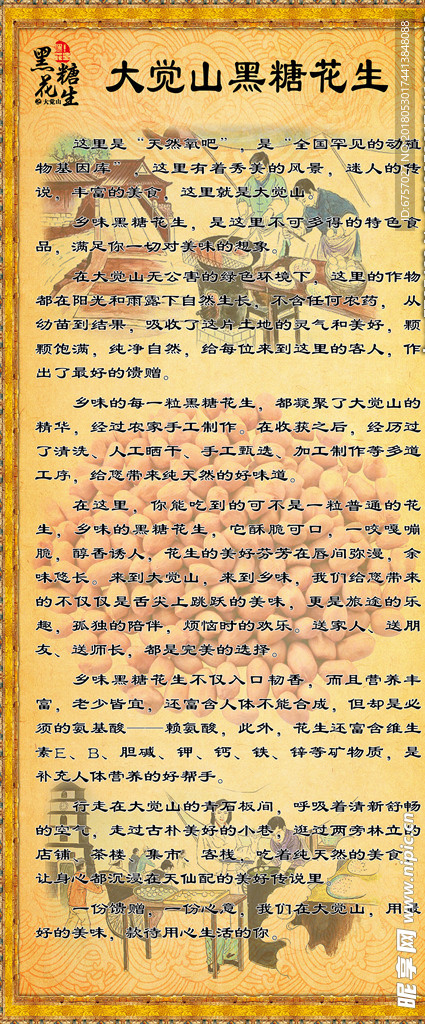 黑糖花生
大觉山
大觉山黑糖花生
这里是“天然氧吧”，是“全国罕见的动植
物基因库”，这里有着秀美的风景，迷人的传
说，丰富的美食，这里就是大觉山。
乡味黑糖花生，是这里不可多得的特色食
品，满足你一切对美味的想象。
在大觉山无公害的绿色环境下，这里的作物
都在阳光和雨露下自然生长，不含任何农药，从
幼苗到结果，吸收了这片土地的灵气和美好，颗
颗饱满，纯净自然，给每位来到这里的客人，作
出了最好的馈赠。
乡味的每一粒黑糖花生，都凝聚了大觉山的
精华，经过农家手工制作。在收获之后，经历过
了清洗、人工晒干、手工甄选、加工制作等多道
工序，给您带来纯天然的好味道。
在这里，你能吃到的可不是一粒普通的花
生，乡味的黑糖花生，它酥脆可口，一咬嘎嘣
脆，醇香诱人，花生的美好芬芳在唇间弥漫，余
味悠长。来到大觉山，来到乡味，我们给您带来
的不仅仅是舌尖上跳跃的美味，更是旅途的乐
趣，孤独的陪伴，烦恼时的欢乐。送家人、送朋
友、送师长，都是完美的选择。
乡味黑糖花生不仅入口韧香，而且营养丰
富，老少皆宜，还富含人体不能合成，但却是必
须的氨基酸——赖氨酸，此外，花生还富含维生
素E、B、胆碱、钾、钙、铁、锌等矿物质，是
补充人体营养的好帮手。
行走在大觉山的青石板间，呼吸着清新舒畅
的空气，走过古朴美好的小巷，逛过两旁林立的
店铺、茶楼、集市、客栈，吃着纯天然的美食，
让身心都沉浸在天仙配的美好传说里。
一份馈赠，一份心意，我们在大觉山，用
好的美味，款待用心生活的你。
昵享网 www.nipic.cn